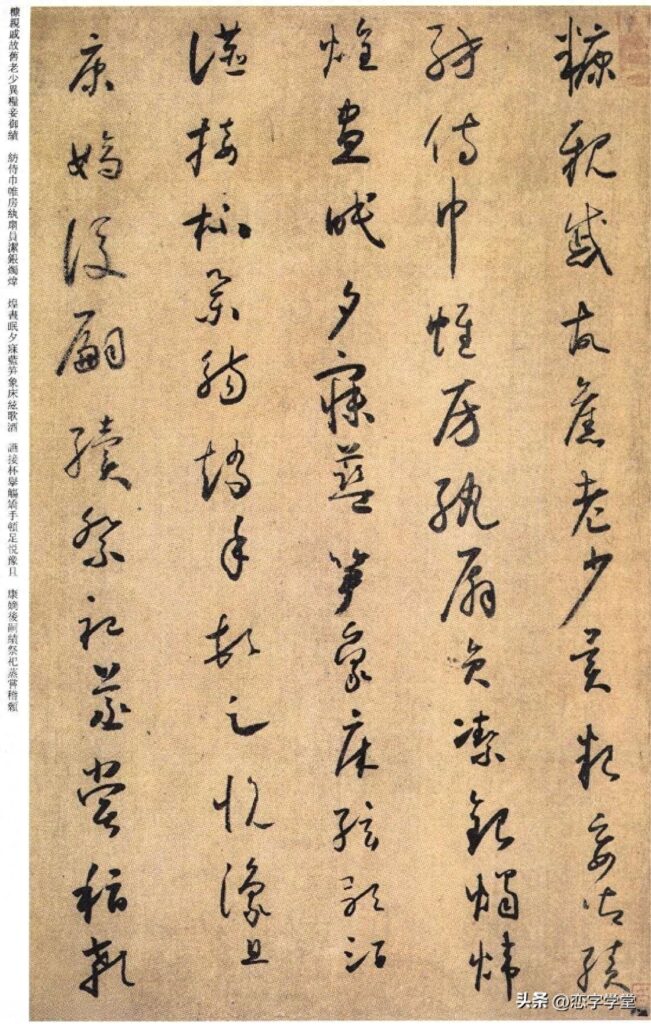 糠親戚故舊老少異糧妾御績
紡侍巾帷房紈扇員潔銀燭煒
煌晝眠夕寐藍笋象床絃歌酒
讌接杯舉觴矯手頓足悅豫且
康嫡後嗣續祭祀蒸嘗稽顙
糠親戚故舊老少異糧妾御績 紡侍巾帷房紈扇員潔銀燭煒 煌晝眠夕寐藍笋象床絃歌酒 讌接杯舉觴矯手頓足悅豫且 康嫡後嗣續祭祀蒸嘗稽顙
头条 @恋字学堂